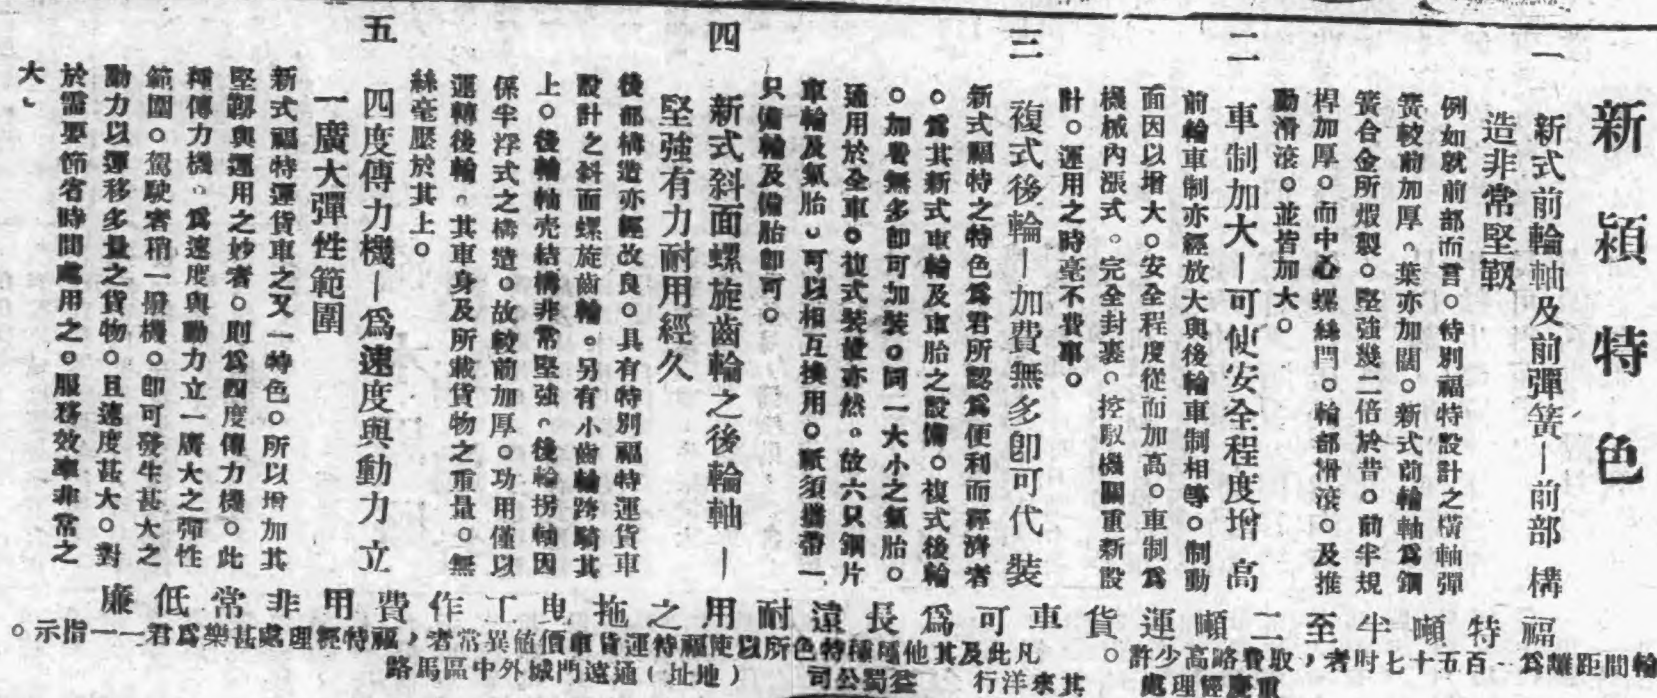 新穎特色
一 新式前輪軸及前彈簧—前部構
造非常堅韌
例如就前部而言。特別福特設計之橫軸彈
簧較前加厚。葉亦加闊。新式前輪軸爲鋼
簧合金所煅製。堅強幾二倍於昔。前半規
桿加厚。而中心螺絲門。輪部滑滾。及推
動滑滾。並皆加大。
二 車制加大—可使安全程度增高
前輪車制亦經放大與後輪車制相等。制動
面因以增大。安全程度從而加高。車制爲
機械內漲式。完全封裹。控馭機關重新設
計。運用之時毫不費事。
三 複式後輪—加費無多卽可代裝
新式福特之特色爲君所認爲便利而經濟者
。爲其新式車輪及車胎之設備。複式後輪
。加費無多卽可加裝。同一大小之氣胎。
通用於全車。複式裝置亦然。故六只鋼片
車輪及氣胎。可以相互換用。祇須攜帶一
只備輪及備胎卽可。
四 新式斜面螺旋齒輪之後輪軸—
堅強有力耐用經久
後部構造亦經改良。具有特別福特運貨車
設計之斜面螺旋齒輪。另有小齒輪跨騎其
上。後輪軸壳結構非常堅強。後輪拐軸因
係半浮式之構造。故較前加厚。功用僅以
運轉後輪。其車身及所載貨物之重量。無
絲毫壓於其上。
五 四度傳力機—爲速度與動力立
一廣大彈性範圍
新式福特運貨車之又一特色。所以增加其
堅韌與運用之妙者。則爲四度傳力機。此
種傳力機。爲速度與動力立一廣大之彈性
範圍。駕駛者稍一撥機。卽可發生甚大之
動力以運移多量之貨物。且速度甚大。對
於需要節省時間處用之。服務效率非常之
大。
福特噸半至二噸運貨車可爲長遠耐用之拖曳工作費用非常低廉
輪間距離爲一百五十七吋者，取費略高少許。
凡此及其他種種特色所以使福特運貨車價値異常者，福特經理處甚樂爲君一一指示。
重慶經理處
其來洋行
益蜀公司
（地址）通遠門城外中區馬路